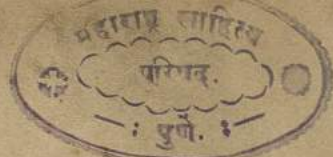 महाराष्ट्र साहित्य
परिषद्.
—: पुणे. :—